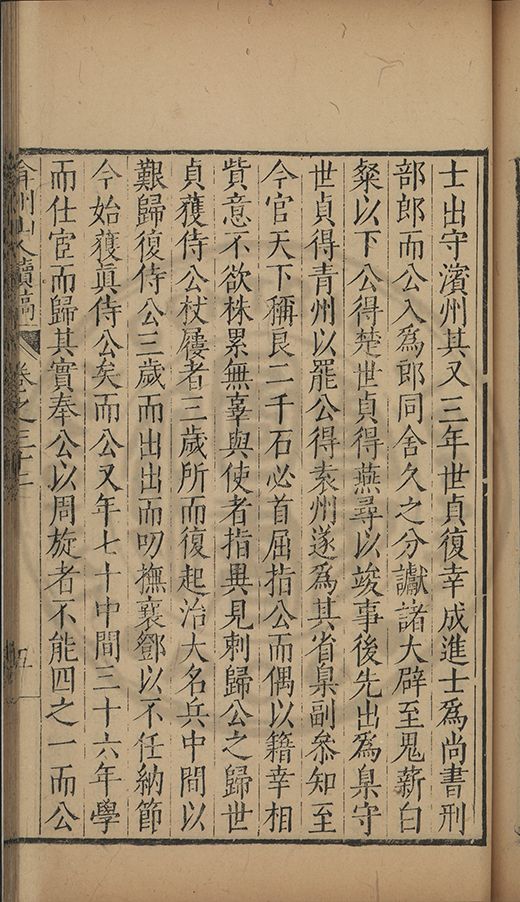 士出守濱州其又三年世貞復幸成進士爲尚書刑
部郎而公入爲郎同舍久之分讞諸大辟至鬼薪白
粲以下公得楚世貞得燕尋以竣事後先出爲臬守
世貞得青州以罷公得袁州遂爲其省臬副叅知至
今官天下稱良二千石必首屈指公而偶以籍幸相
貲意不欲株累無辜與使者指異見刺歸公之歸世
貞獲侍公杖屨者三歲所而復起治大名兵中間以
艱歸復侍公三歲而出出而叨撫襄鄧以不任納節
今始獲眞侍公矣而公又年七十中間三十六年學
而仕宦而歸其實奉公以周旋者不能四之一而公
弇州山人續稿 卷之三十二 五